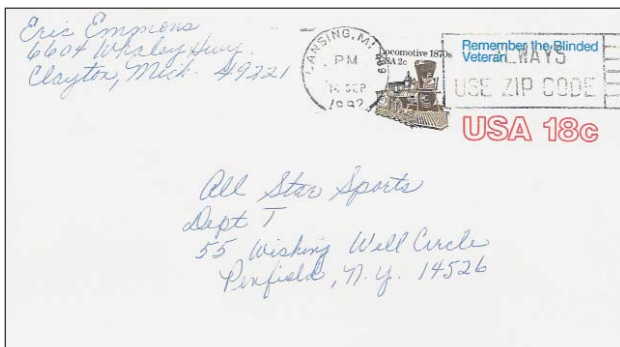 Eric Emmons
6604 Whaley Hwy.
Clayton, Mich. 49221
LANSING, MI
PM
14 SEP
1982
Locomotive 1870s
USA 2c
Remember the Blinded
Veteran
ALWAYS
USE ZIP CODE
USA 18c
All Star Sports
Dept T
55 Wishing Well Circle
Penfield, N.Y. 14526